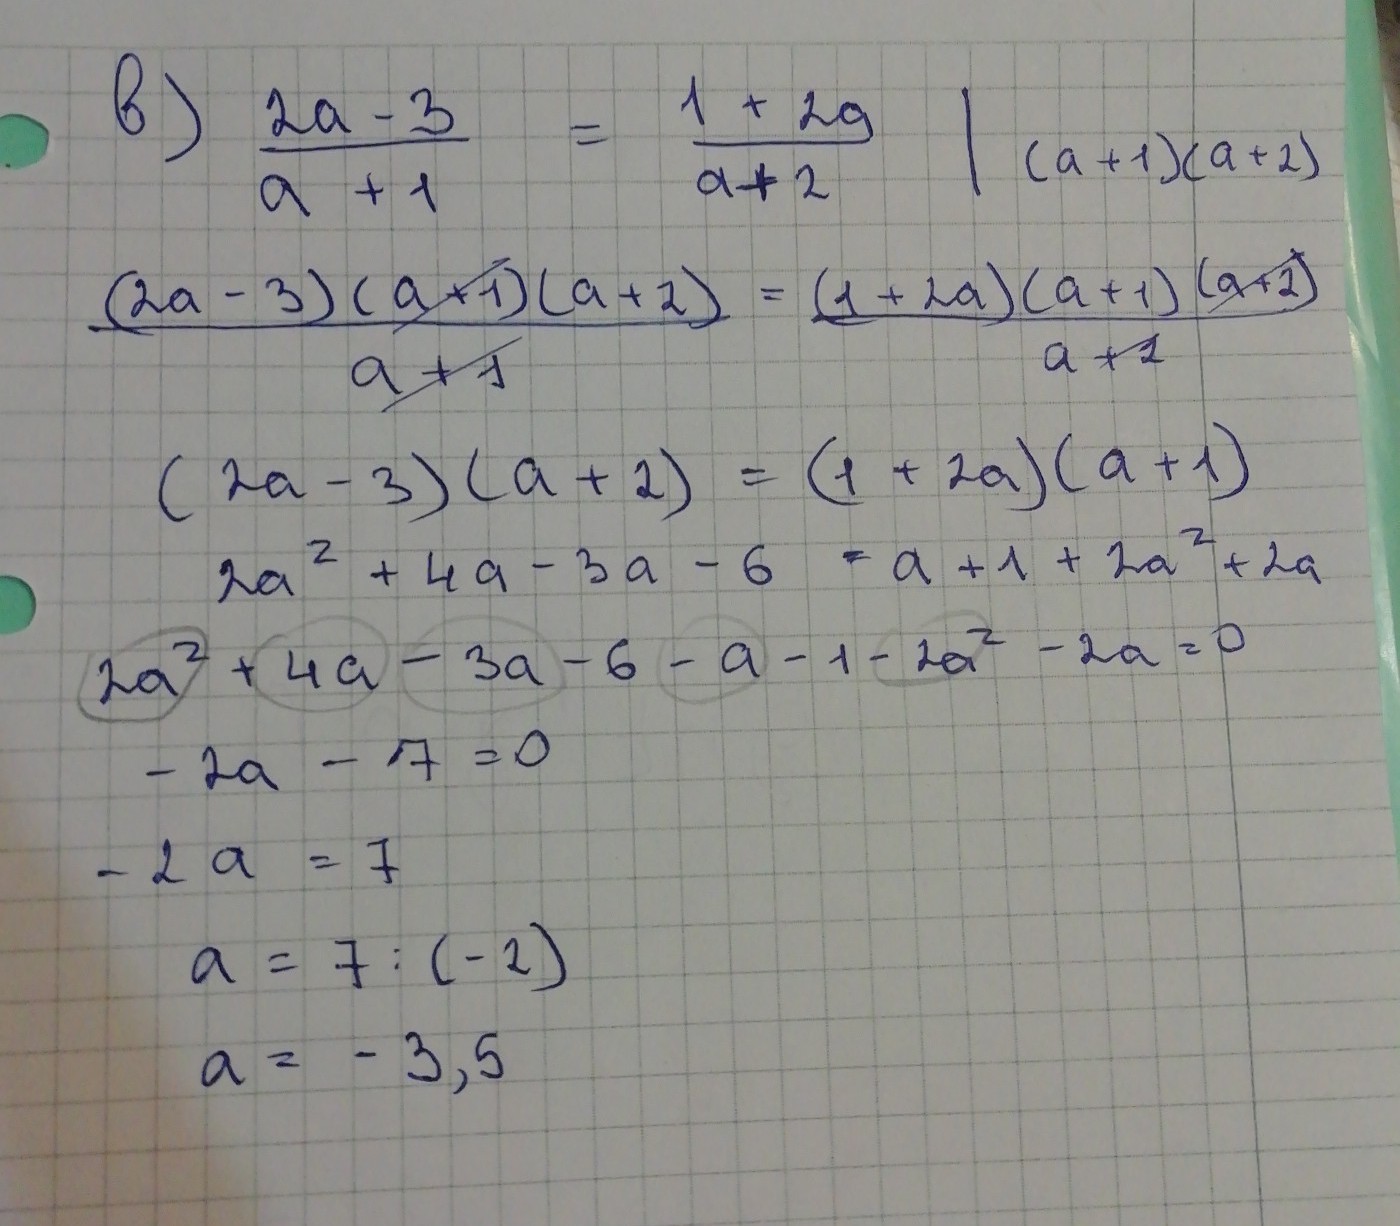 в) (2a - 3)/(a + 1) = (1 + 2a)/(a + 2) | (a + 1)(a + 2)
((2a - 3)(a + 1)(a + 2))/(a + 1) = ((1 + 2a)(a + 1)(a + 2))/(a + 2)
(2a - 3)(a + 2) = (1 + 2a)(a + 1)
2a² + 4a - 3a - 6 = a + 1 + 2a² + 2a
2a² + 4a - 3a - 6 - a - 1 - 2a² - 2a = 0
- 2a - 7 = 0
- 2a = 7
a = 7 : (-2)
a = - 3,5